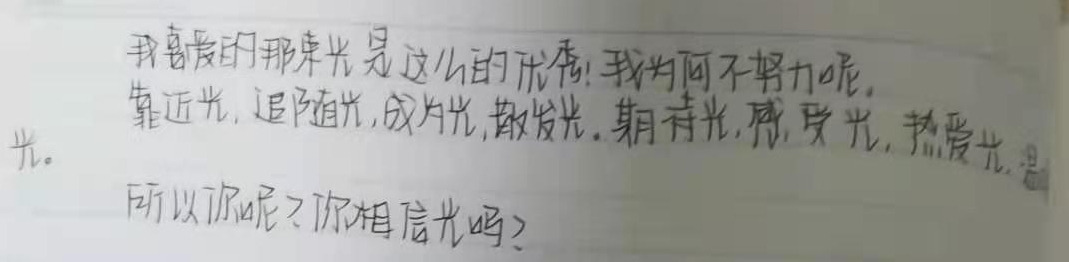 我喜爱的那束光是这么的优秀!我为何不努力呢。
靠近光,追随光,成为光,散发光。期待光,感受光,热爱光,
光。
所以你呢?你相信光吗?